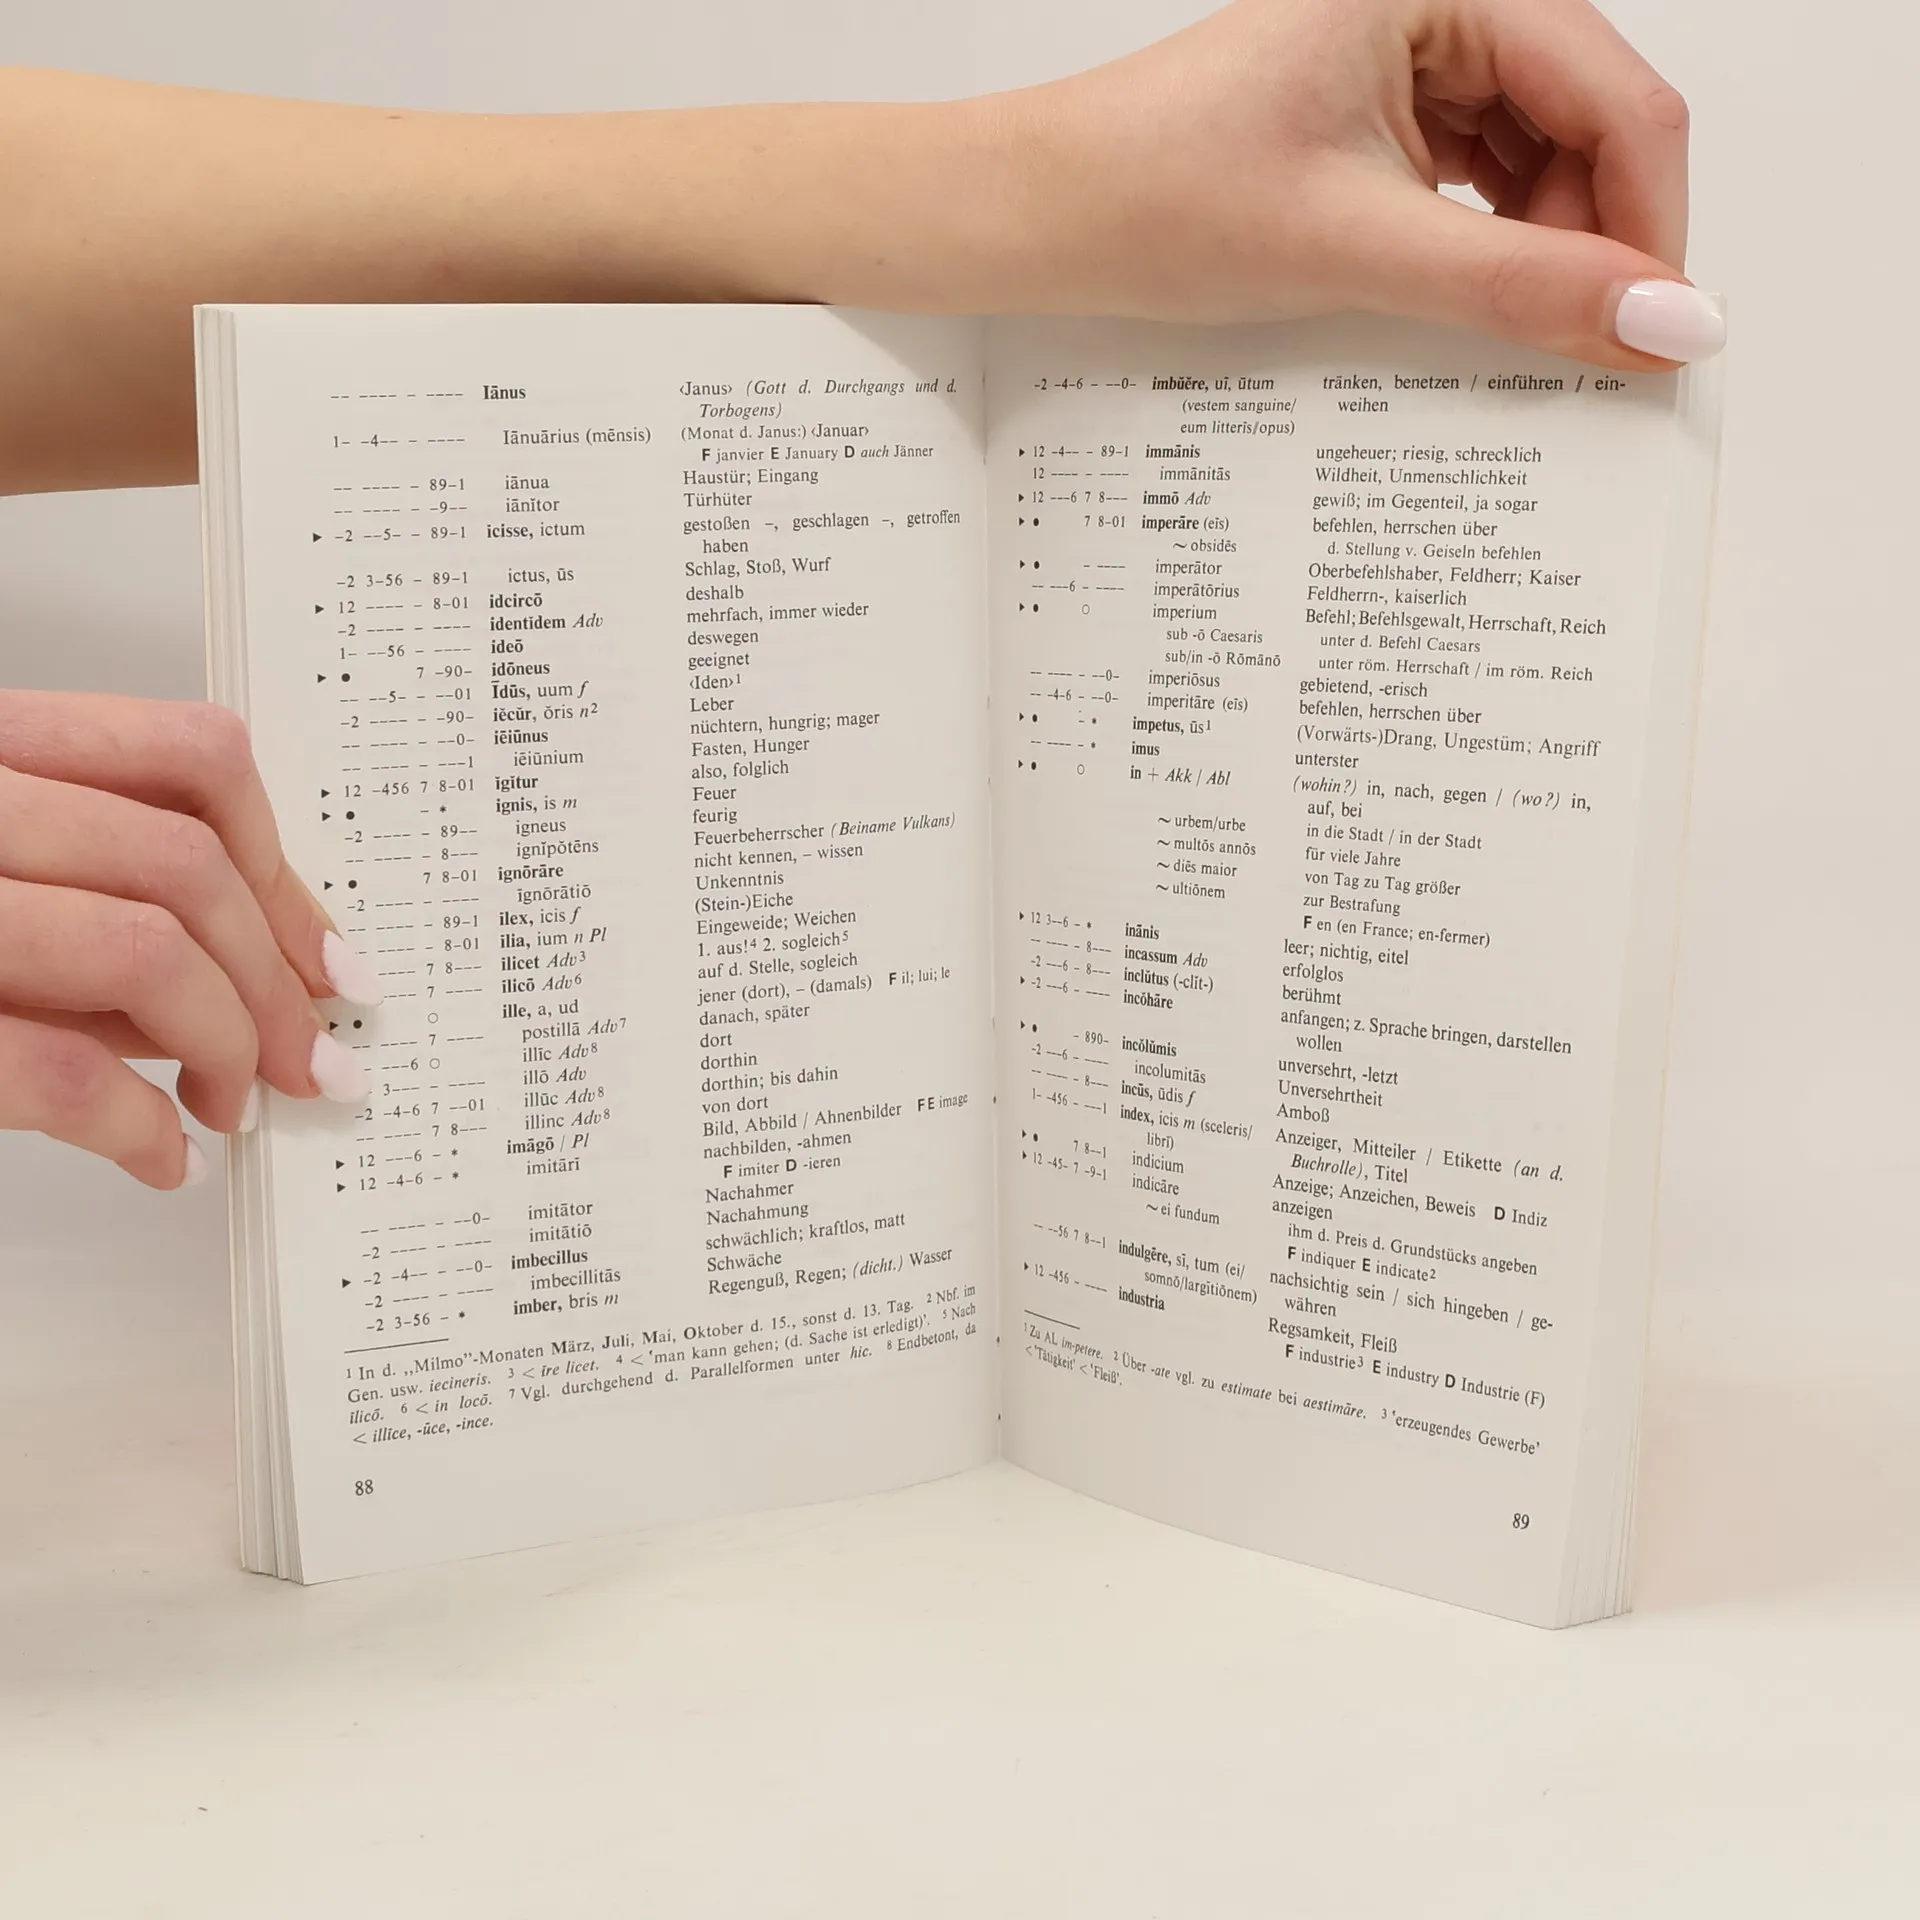 -- ---- - ---- Iānus ‹Janus› (Gott d. Durchgangs und d.
Torbogens)
1- -4-- - ---- Iānuārius (mēnsis) (Monat d. Janus:) ‹Januar›
F janvier E January D auch Jänner
-- ---- - 89-1 iānua Haustür; Eingang
-- ---- - -9-- iānĭtor Türhüter
▸ -2 --5- - 89-1 icisse, ictum gestoßen –, geschlagen –, getroffen
haben
-2 3-56 - 89-1 ictus, ūs Schlag, Stoß, Wurf
▸ 12 ---- - 8-01 idcircō deshalb
-2 ---- - ---- identĭdem Adv mehrfach, immer wieder
1- --56 - ---- ideō deswegen
▸ ● 7 -90- idōneus geeignet
-- --5- - --01 Īdūs, uum f ‹Iden›1
-2 ---- - -90- iĕcŭr, ŏris n2 Leber
-- ---- - --0- iēiūnus nüchtern, hungrig; mager
-- ---- - ---1 iēiūnium Fasten, Hunger
▸ 12 -456 7 8-01 ĭgĭtur also, folglich
▸ ● - * ignis, is m Feuer
-2 ---- - 89-- igneus feurig
-- ---- - 8--- ignĭpŏtēns Feuerbeherrscher (Beiname Vulkans)
▸ ● 7 8-01 ignōrāre nicht kennen, – wissen
-2 ---- - ---- īgnōrātiō Unkenntnis
-- ---- - 89-1 īlex, icis f (Stein-)Eiche
---- - 8-01 īlia, ium n Pl Eingeweide; Weichen
---- 7 8--- īlicet Adv3 1. aus!4 2. sogleich5
---- 7 ---- īlicō Adv6 auf d. Stelle, sogleich
▸ ● ○ ille, a, ud jener (dort), – (damals) F il; lui; le
-- ---- 7 ---- postillā Adv7 danach, später
- ---6 ○ illīc Adv8 dort
- 3--- - ---- illō Adv dorthin
-2 -4-6 7 --01 illūc Adv8 dorthin; bis dahin
-- ---- 7 8--- illinc Adv8 von dort
▸ 12 ---6 - * imāgō / Pl Bild, Abbild / Ahnenbilder F E image
▸ 12 -4-6 - * imitārī nachbilden, -ahmen
F imiter D -ieren
-- ---- - --0- imitātor Nachahmer
-2 ---- - ---- imitātiō Nachahmung
▸ -2 -4-- - --0- imbecillus schwächlich; kraftlos, matt
-2 ---- - ---- imbecillitās Schwäche
-2 3-56 - * imber, bris m Regenguß, Regen; (dicht.) Wasser
1 In d. „Milmo”-Monaten März, Juli, Mai, Oktober d. 15., sonst d. 13. Tag. 2 Nbf. im
Gen. usw. iecineris. 3 < īre licet. 4 < 'man kann gehen; (d. Sache ist erledigt)'. 5 Nach
īlicō. 6 < in locō. 7 Vgl. durchgehend d. Parallelformen unter hic. 8 Endbetont, da
< illīce, -ūce, -ince.
88
-2 -4-6 - --0- imbŭĕre, uī, ūtum tränken, benetzen / einführen / ein-
(vestem sanguine/ weihen
eum litterīs/opus)
▸ 12 -4-- - 89-1 immānis ungeheuer; riesig, schrecklich
12 ---- - ---- immānitās Wildheit, Unmenschlichkeit
▸ 12 ---6 7 8--- immō Adv gewiß; im Gegenteil, ja sogar
▸ ● 7 8-01 imperāre (eīs) befehlen, herrschen über
~ obsidēs d. Stellung v. Geiseln befehlen
▸ ● - ---- imperātor Oberbefehlshaber, Feldherr; Kaiser
-- ---6 - ---- imperātōrius Feldherrn-, kaiserlich
▸ ● ○ imperium Befehl; Befehlsgewalt, Herrschaft, Reich
sub -ō Caesaris unter d. Befehl Caesars
sub/in -ō Rōmānō unter röm. Herrschaft / im röm. Reich
-- ---- - --0- imperiōsus gebietend, -erisch
-- -4-6 - --0- imperitāre (eīs) befehlen, herrschen über
▸ ● - * impetus, ūs1 (Vorwärts-)Drang, Ungestüm; Angriff
-- ---- - * īmus unterster
▸ ● ○ in + Akk / Abl (wohin?) in, nach, gegen / (wo?) in,
auf, bei
~ urbem/urbe in die Stadt / in der Stadt
~ multōs annōs für viele Jahre
~ diēs maior von Tag zu Tag größer
~ ultiōnem zur Bestrafung
F en (en France; en-fermer)
▸ 12 3--6 - * inānis leer; nichtig, eitel
-- ---- - 8--- incassum Adv erfolglos
-2 ---6 - 8--- inclŭtus (-clīt-) berühmt
▸ -2 ---6 - ---- incŏhāre anfangen; z. Sprache bringen, darstellen
wollen
▸ ● - 890- incŏlŭmis unversehrt, -letzt
-2 ---6 - ---- incolumitās Unversehrtheit
-- ---- - 8--- incūs, ūdis f Amboß
1- -456 - ---1 index, icis m (sceleris/ Anzeiger, Mitteiler / Etikette (an d.
librī) Buchrolle), Titel
▸ ● 7 8--1 indicium Anzeige; Anzeichen, Beweis D Indiz
▸ 12 -45- 7 -9-1 indicāre anzeigen
~ ei fundum ihm d. Preis d. Grundstücks angeben
F indiquer E indicate2
-- --56 7 8--1 indulgēre, sī, tum (ei/ nachsichtig sein / sich hingeben / ge-
somnō/largītiōnem) währen
▸ 12 -456 - ---- industria Regsamkeit, Fleiß
F industrie3 E industry D Industrie (F)
1 Zu AL im-petere. 2 Über -ate vgl. zu estimate bei aestimāre. 3 'erzeugendes Gewerbe'
< 'Tätigkeit' < 'Fleiß'.
89